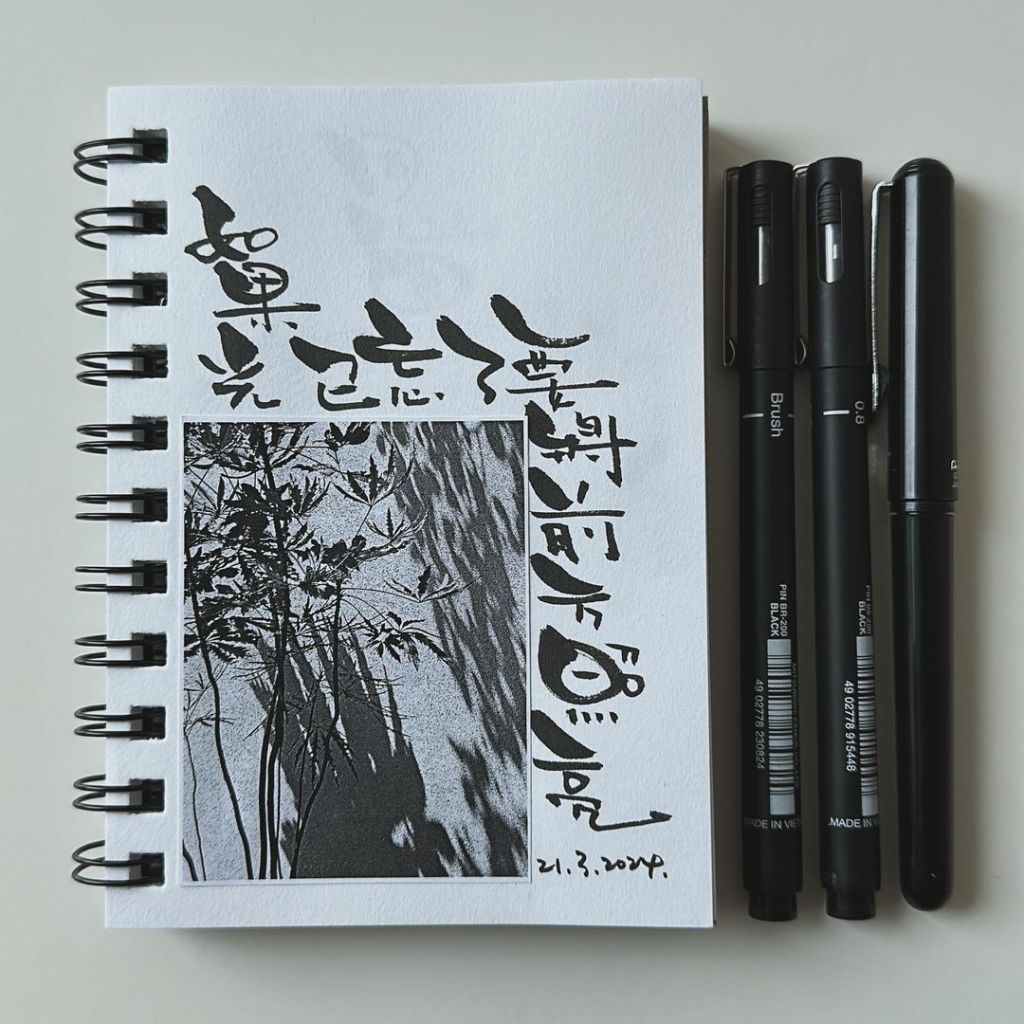 如果光
已
忘
了
要將前方照亮
21.3.2024.
Brush
PIN BR-200
BLACK
49 02778 230824
MADE IN VIET
0.8
BLACK
49 02778 915448
MADE IN V